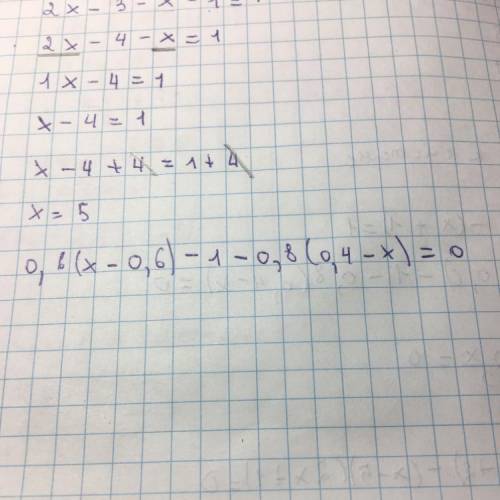 2x - 3 - x - 1 =
2x - 4 - x = 1
1x - 4 = 1
x - 4 = 1
x - 4 + 4 = 1 + 4
x = 5
0,8(x - 0,6) - 1 - 0,8(0,4 - x) = 0